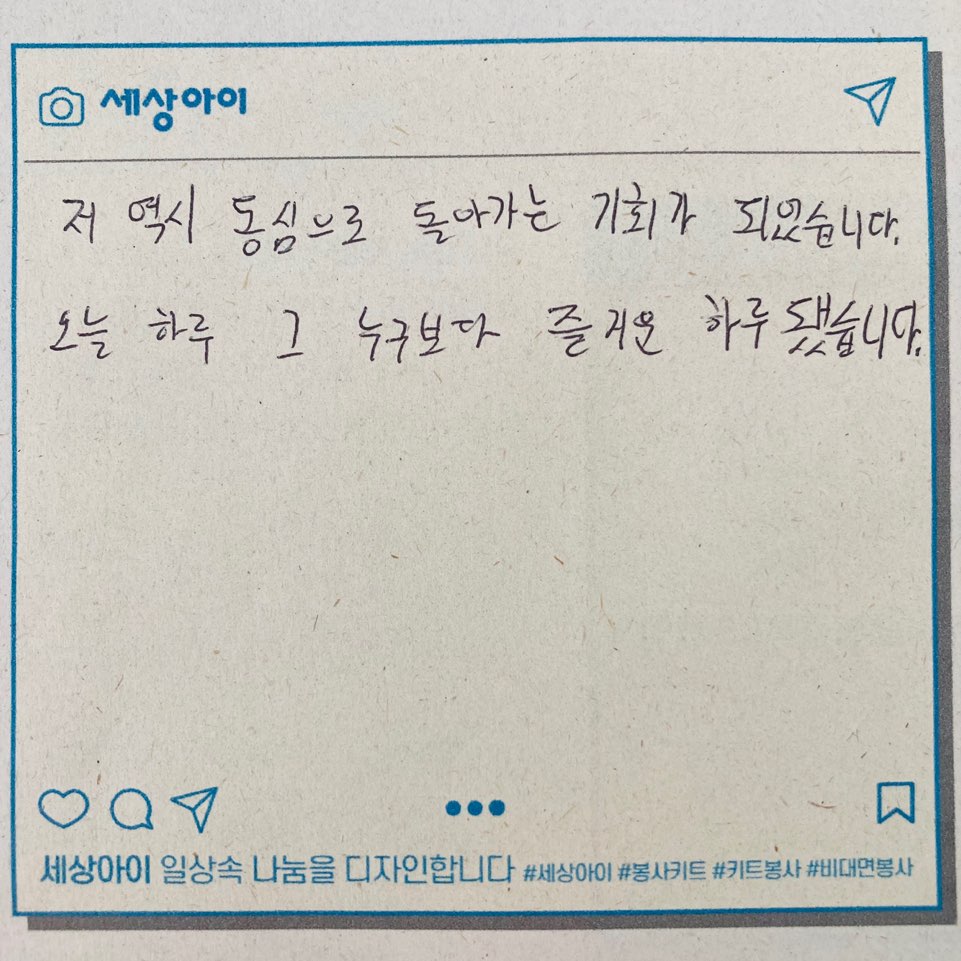 세상아이
저 역시 동심으로 돌아가는 기회가 되었습니다.
오늘 하루 그 누구보다 즐거운 하루 됐습니다.
세상아이 일상속 나눔을 디자인합니다 #세상아이 #봉사키트 #키트봉사 #비대면봉사